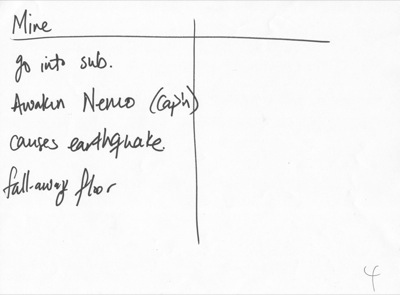 Mine
go into sub.
Awaken Nemo (Cap'n)
causes earthquake.
fall-away floor
4